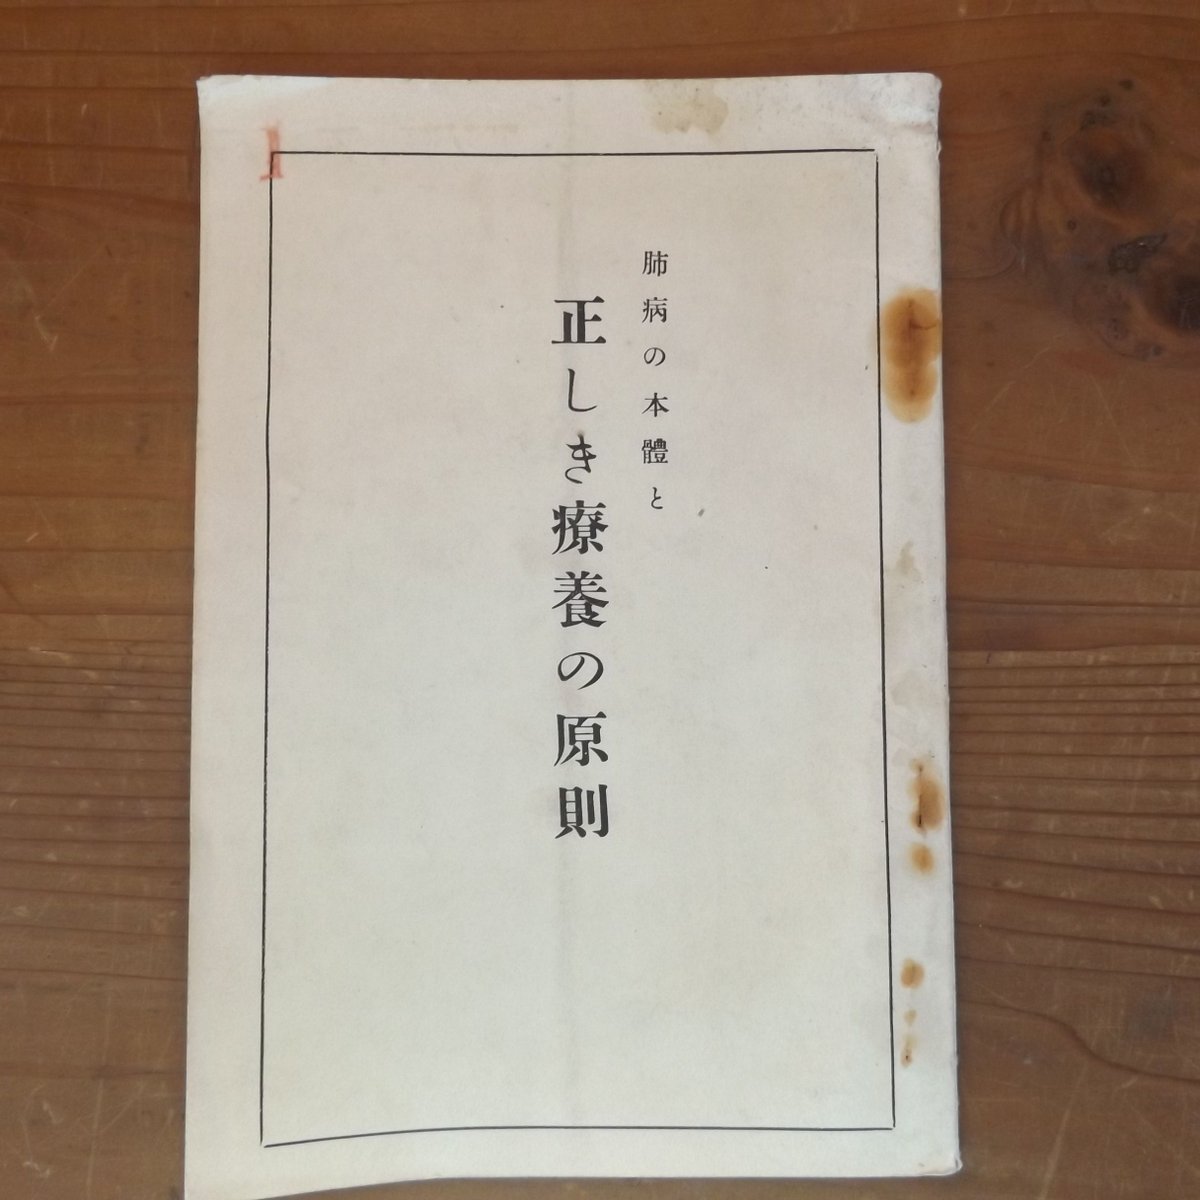 肺病の本體と
正しき療養の原則
1